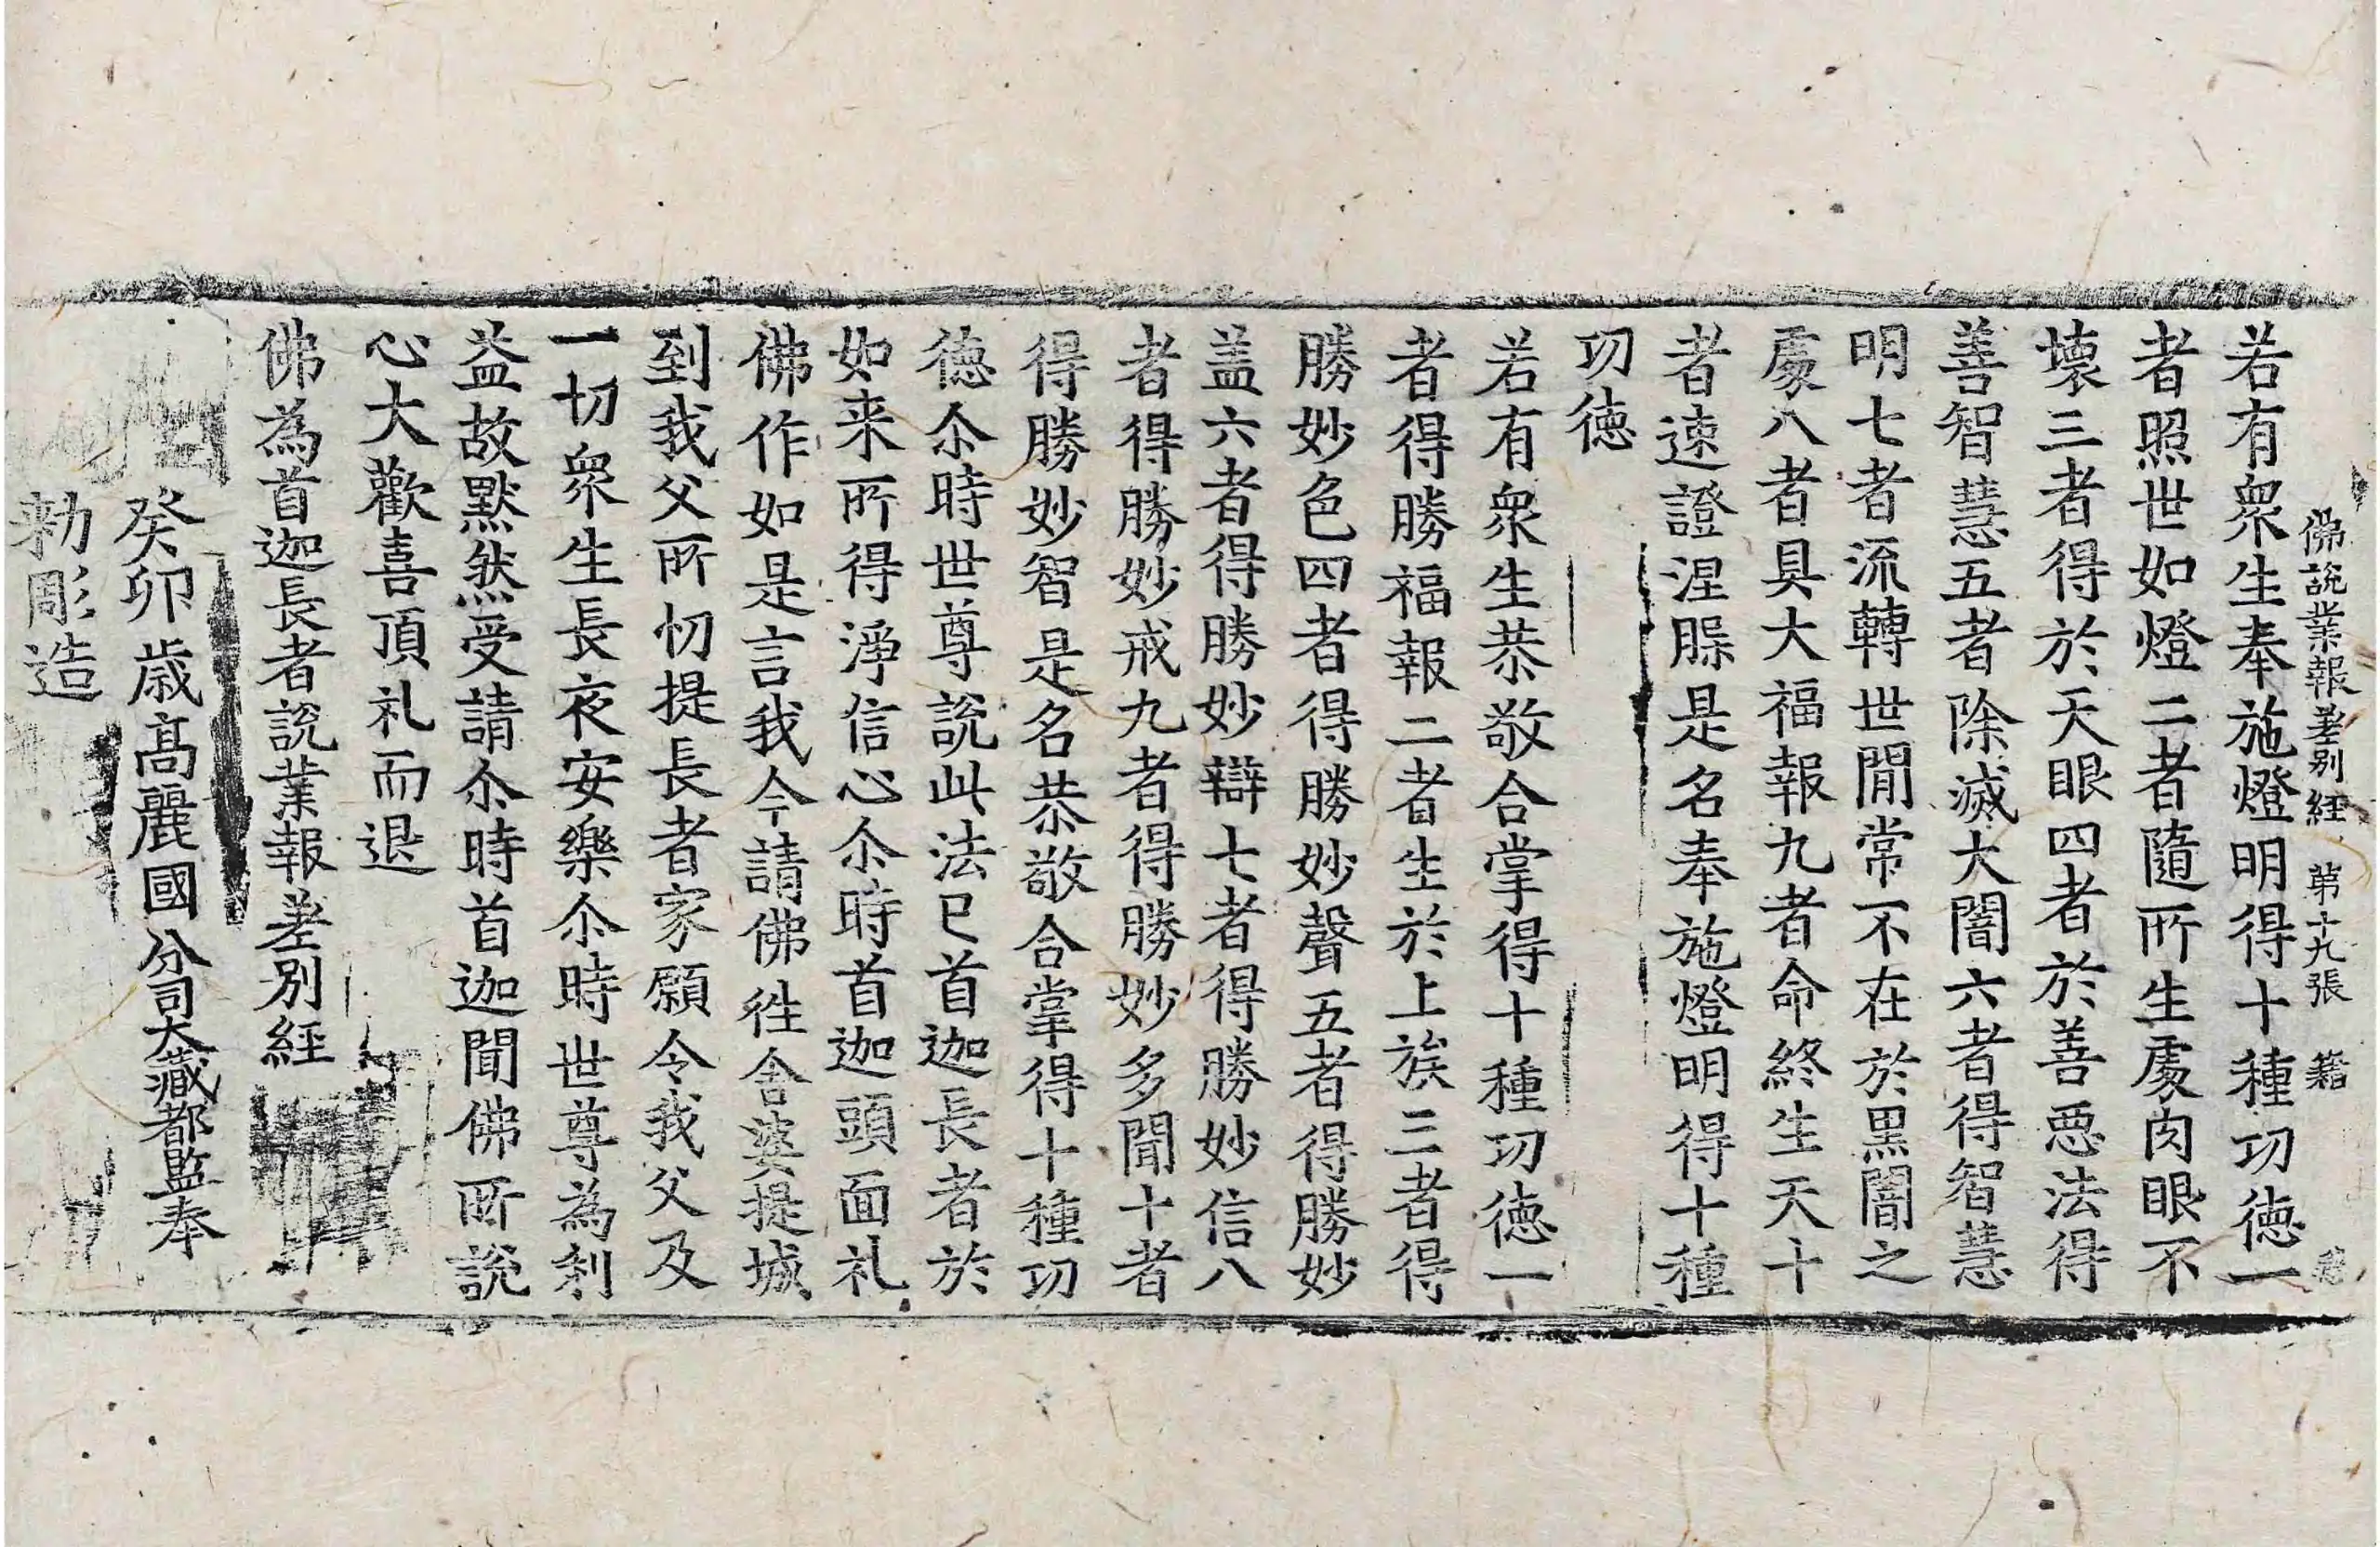 佛說業報差別經 第十九張 籍
若有衆生奉施燈明得十種功德一
者照世如燈二者隨所生處肉眼不
壞三者得於天眼四者於善惡法得
善智慧五者除滅大闇六者得智慧
明七者流轉世閒常不在於黒闇之
處八者具大福報九者命終生天十
者速證涅槃是名奉施燈明得十種
功德
若有衆生恭敬合掌得十種功德一
者得勝福報二者生於上族三者得
勝妙色四者得勝妙聲五者得勝妙
盖六者得勝妙辯七者得勝妙信八
者得勝妙戒九者得勝妙多聞十者
得勝妙智是名恭敬合掌得十種功
德尒時世尊說此法已首迦長者於
如来所得淨信心尒時首迦頭面礼
佛作如是言我今請佛徃舍婆提城
到我父所忉提長者家願令我父及
一切衆生長夜安樂尒時世尊為利
益故默然受請尒時首迦聞佛所說
心大歡喜頂礼而退
佛為首迦長者說業報差別經
癸卯歳髙麗國分司大藏都監奉
勑彫造